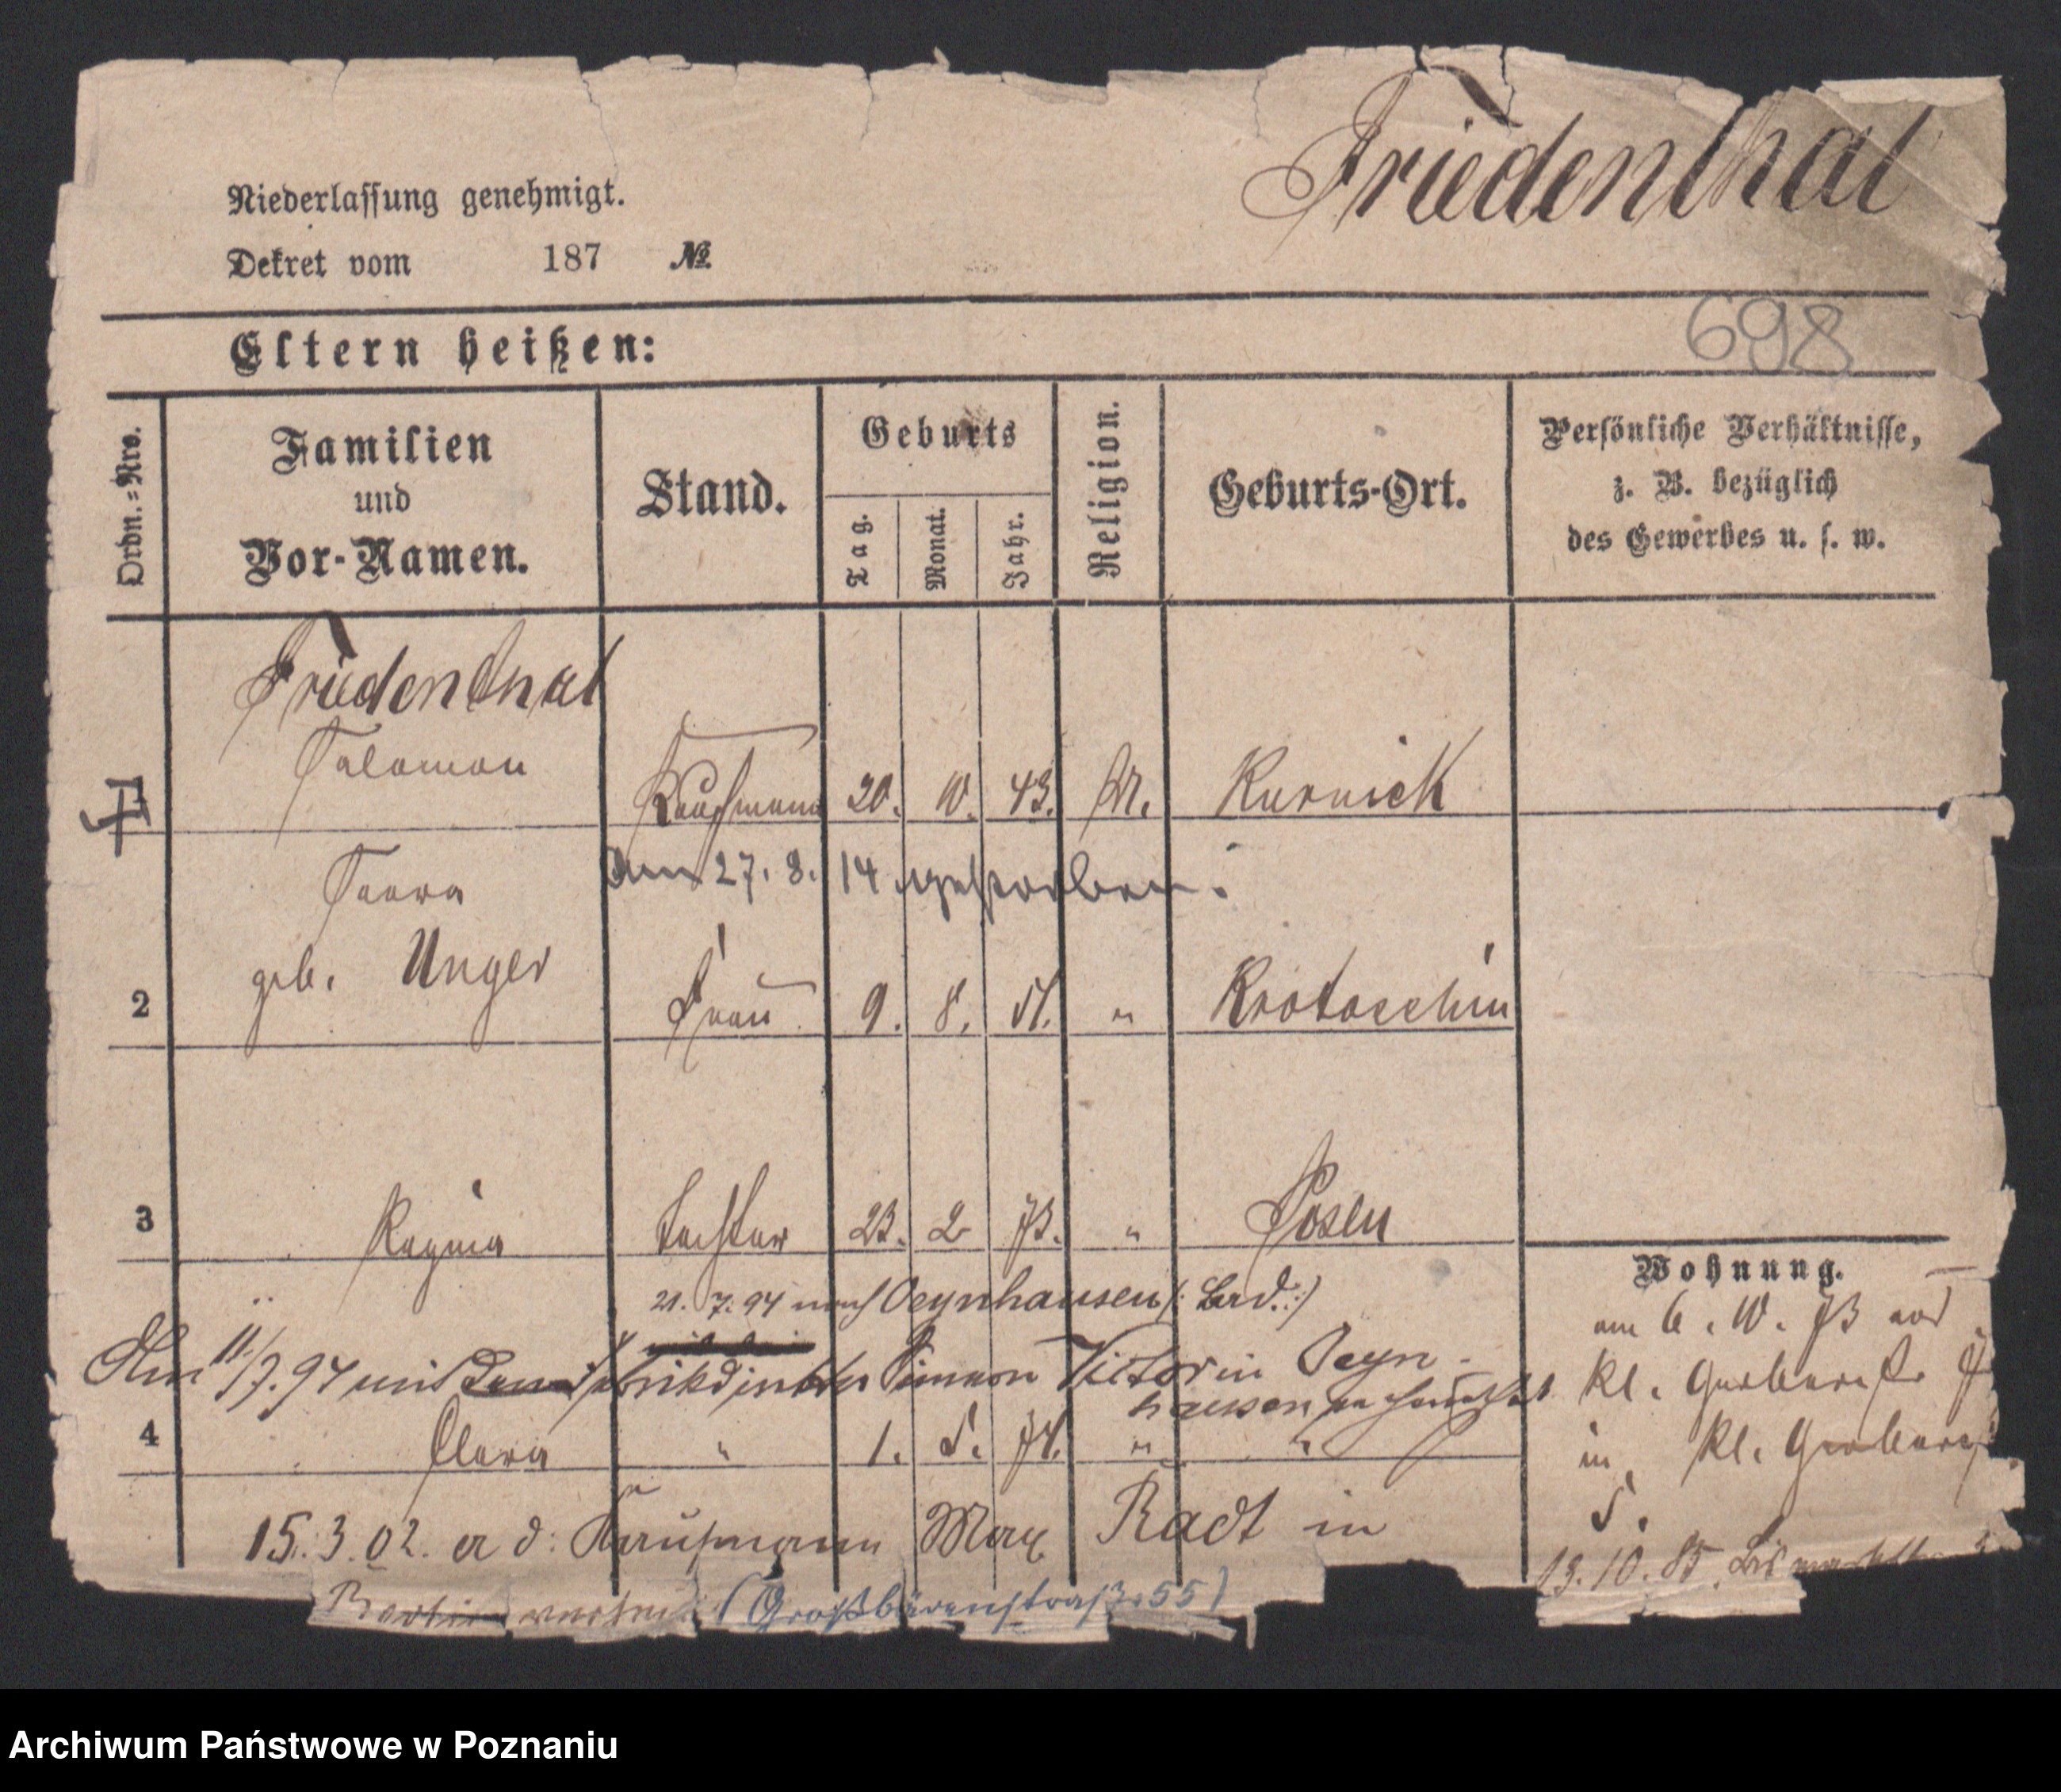 Friedenthal
Niederlassung genehmigt.
Dekret vom 187 №
698
Eltern heißen:
Ordn.=Nro.
Familien
und
Vor-Namen.
Stand.
Geburts
Tag.
Monat.
Jahr.
Religion.
Geburts-Ort.
Persönliche Verhältnisse,
z. B. bezüglich
des Gewerbes u. s. w.
Friedenthal
Salomon Kaufmann 20. 10. 43. M. Kurnick
am 27. 8. 14 gestorben.
geb. Unger
2 Frau 9. 8. 51. " Krotoschin
3 Regina Tochter 23. 2 73. " Posen
21. 7. 94 nach Oeynhausen
Am 11/7. 94 mit dem Fabrikdirektor Simon Victor in Oeyn-
hausen
4 Clara " 1. 5. 74. " "
15. 3. 02. a d: Kaufmann Max Radt in
Berlin (Großbeerenstraß. 55)
Wohnung.
am 6. 10. 73
Kl. Gerberst.
in Kl. Gerberst
5.
13. 10. 85. Bismarckstr
Archiwum Państwowe w Poznaniu